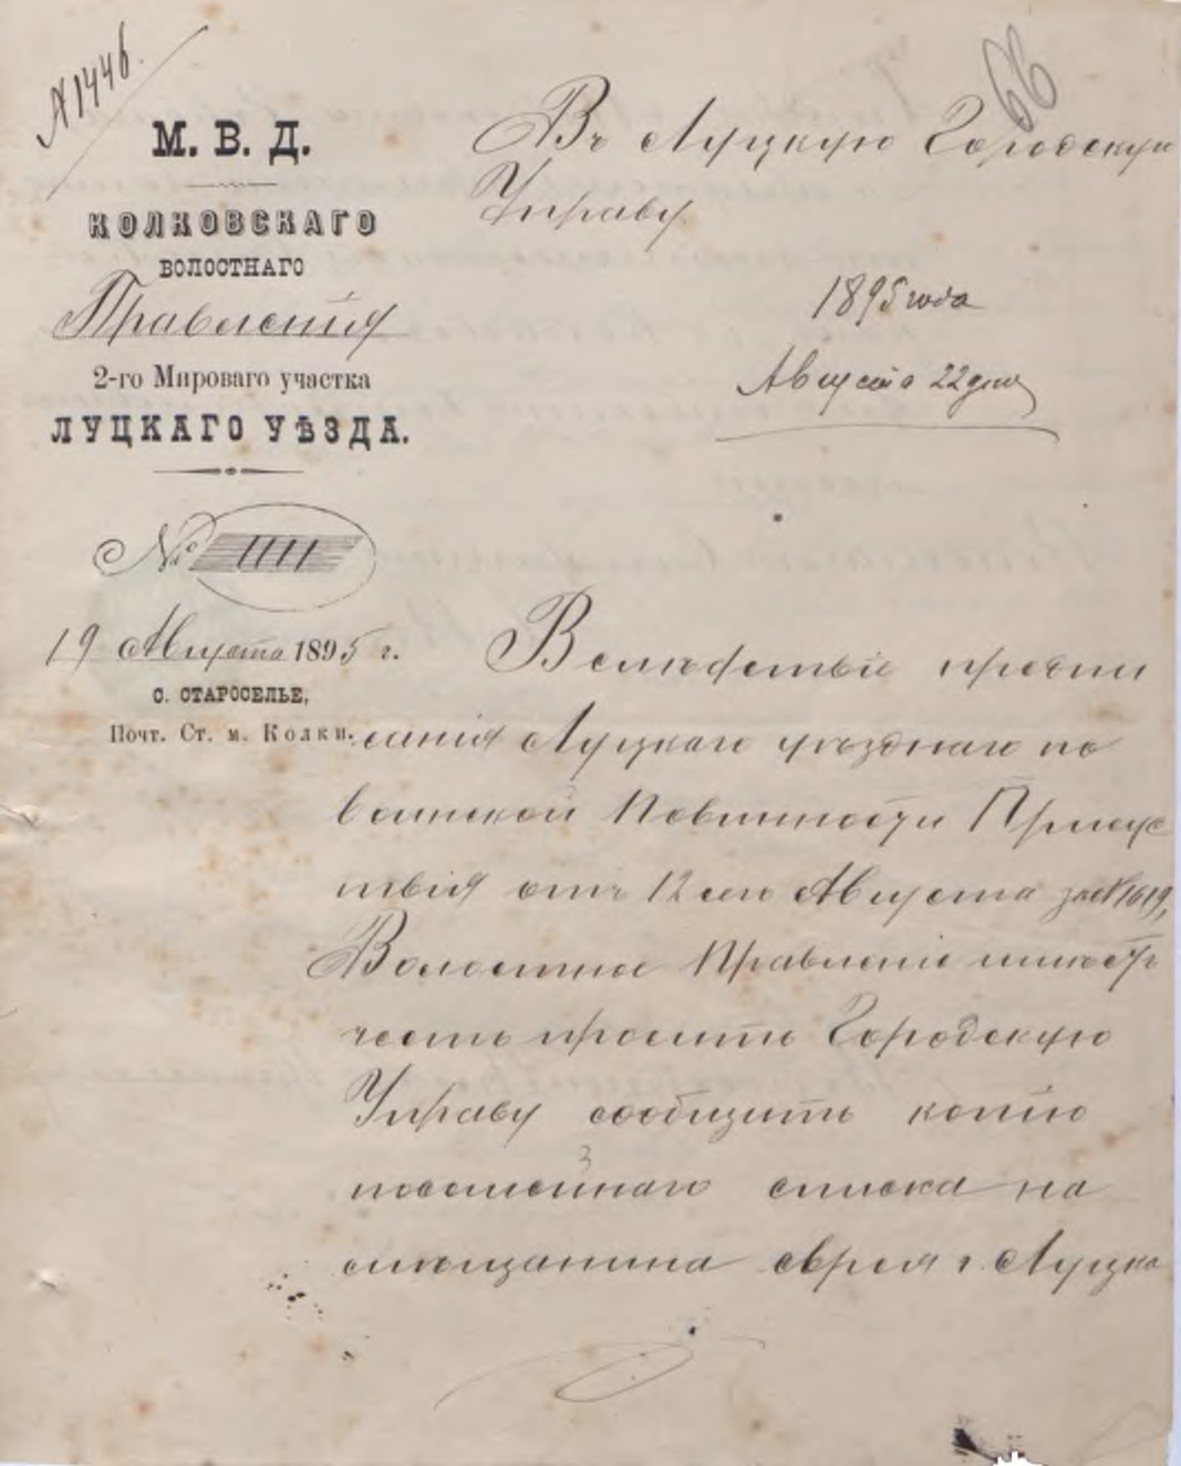 № 1446.
66
М. В. Д.
КОЛКОВСКАГО
ВОЛОСТНАГО
Правленія
2-го Мироваго участка
ЛУЦКАГО УѢЗДА.
№ 1111
19 Августа 1895 г.
с. СТАРОСЕЛЬЕ,
Почт. Ст. м. Колки.
Въ Луцкую Городскую
Управу
1895 года
Августа 22 дня
Вслѣдствіе предпи
санія Луцкаго уѣзднаго по
воинской Повинности Присут
ствія отъ 12 сего Августа за № 1619,
Волостное Правленіе имѣетъ
честь просить Городскую
Управу сообщить копію
посемейнаго списка на
мѣщанина еврея г. Луцка